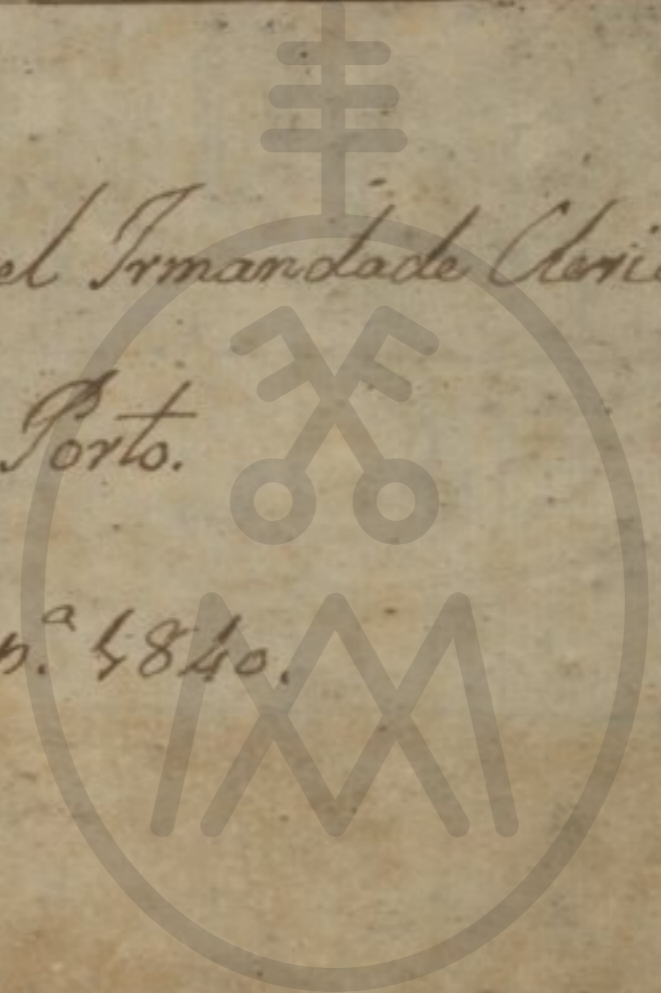 el Irmandade Cleric
Porto.
n.ª 1840.